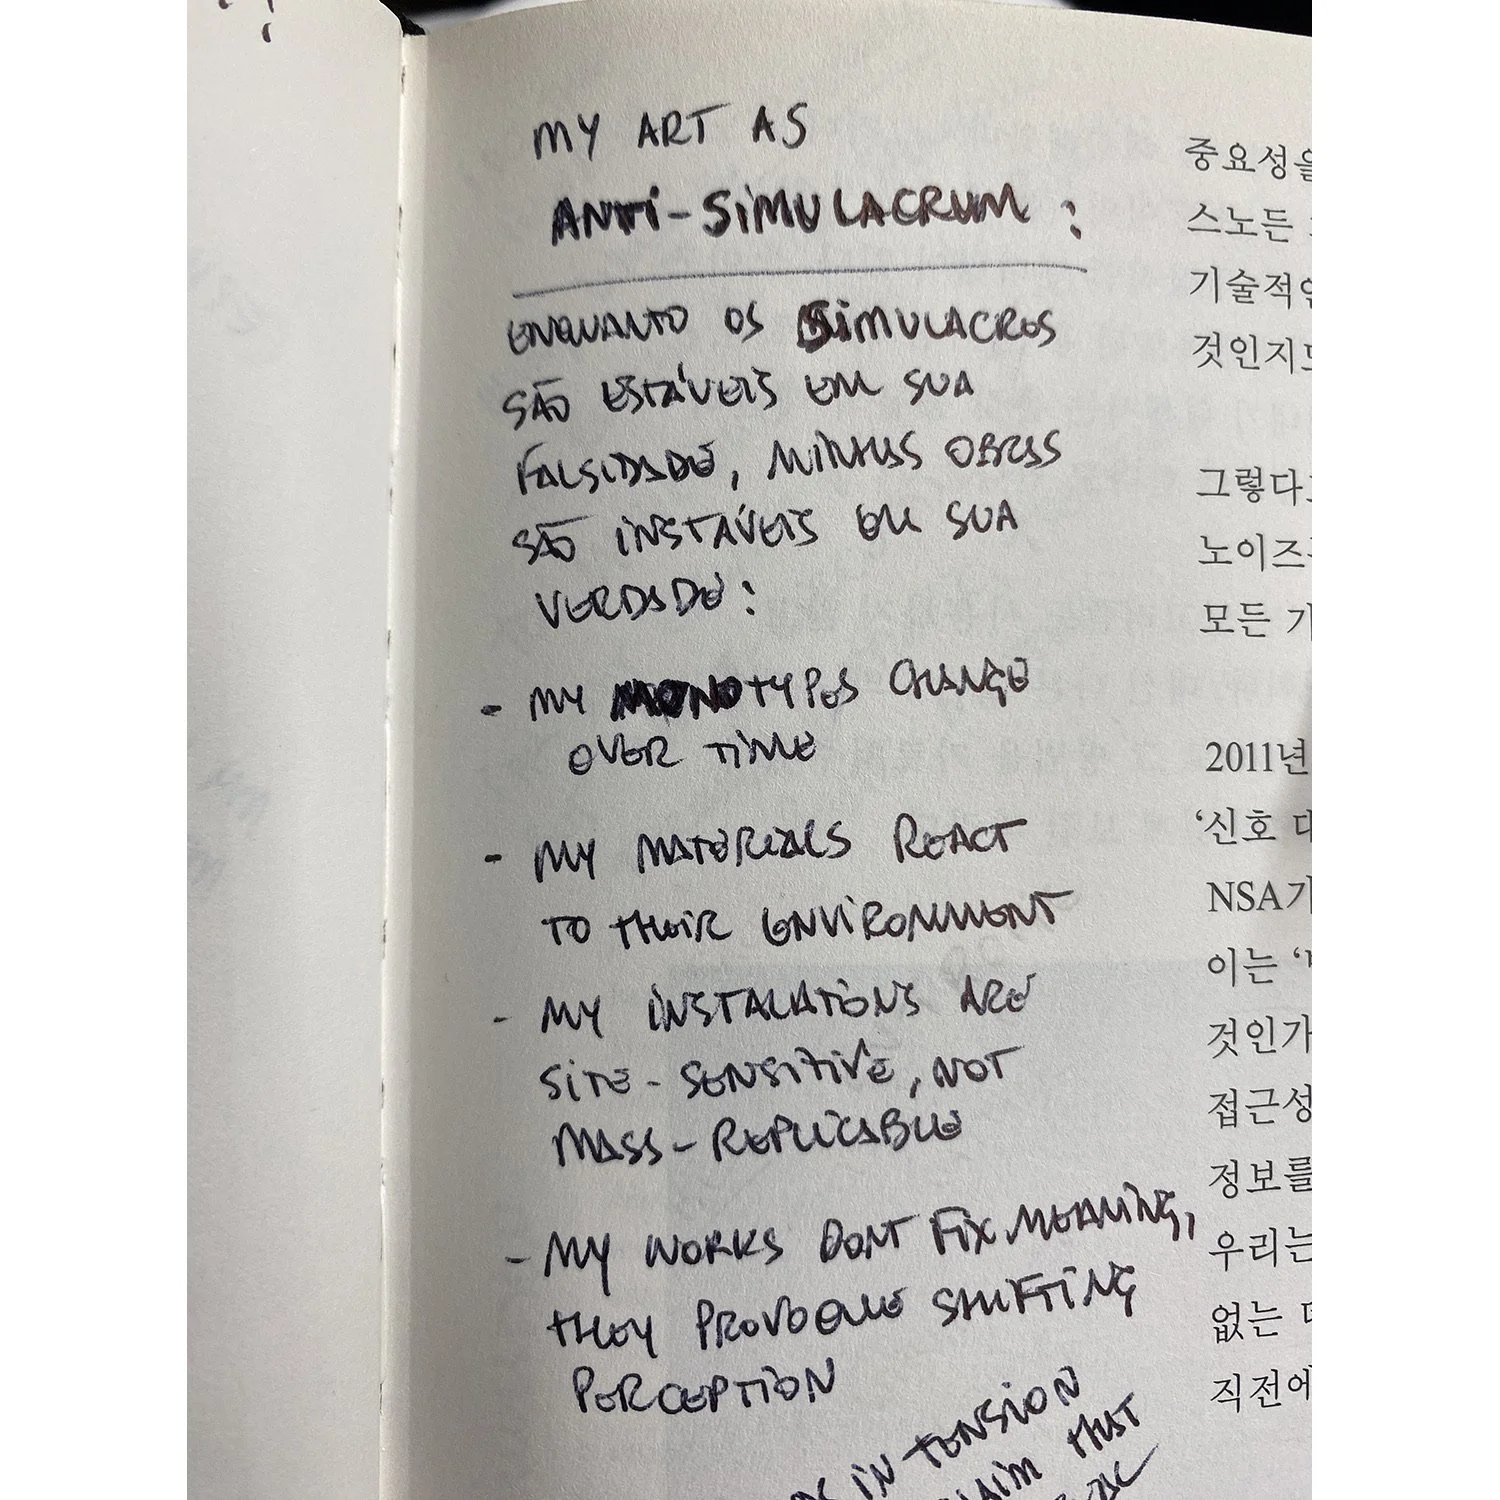 MY ART AS
ANTI-SIMULACRUM:
ENQUANTO OS SIMULACROS
SÃO ESTÁVEIS EM SUA
FALSIDADE, MINHAS OBRAS
SÃO INSTÁVEIS EM SUA
VERDADE:
- MY MONOTYPES CHANGE
OVER TIME
- MY MATERIALS REACT
TO THEIR ENVIRONMENT
- MY INSTALATIONS ARE
SITE-SENSITIVE, NOT
MASS-REPLICABLE
- MY WORKS DONT FIX MEANING,
THEY PROVOQUE SHIFTING
PERCEPTION
IN TENSION
THAT
중요성을
스노든
기술적인
것인지도
그렇다고
노이즈
모든 기
2011년
‘신호 대
NSA가
이는 ‘
것인가
접근성
정보를
우리는
없는
직전에